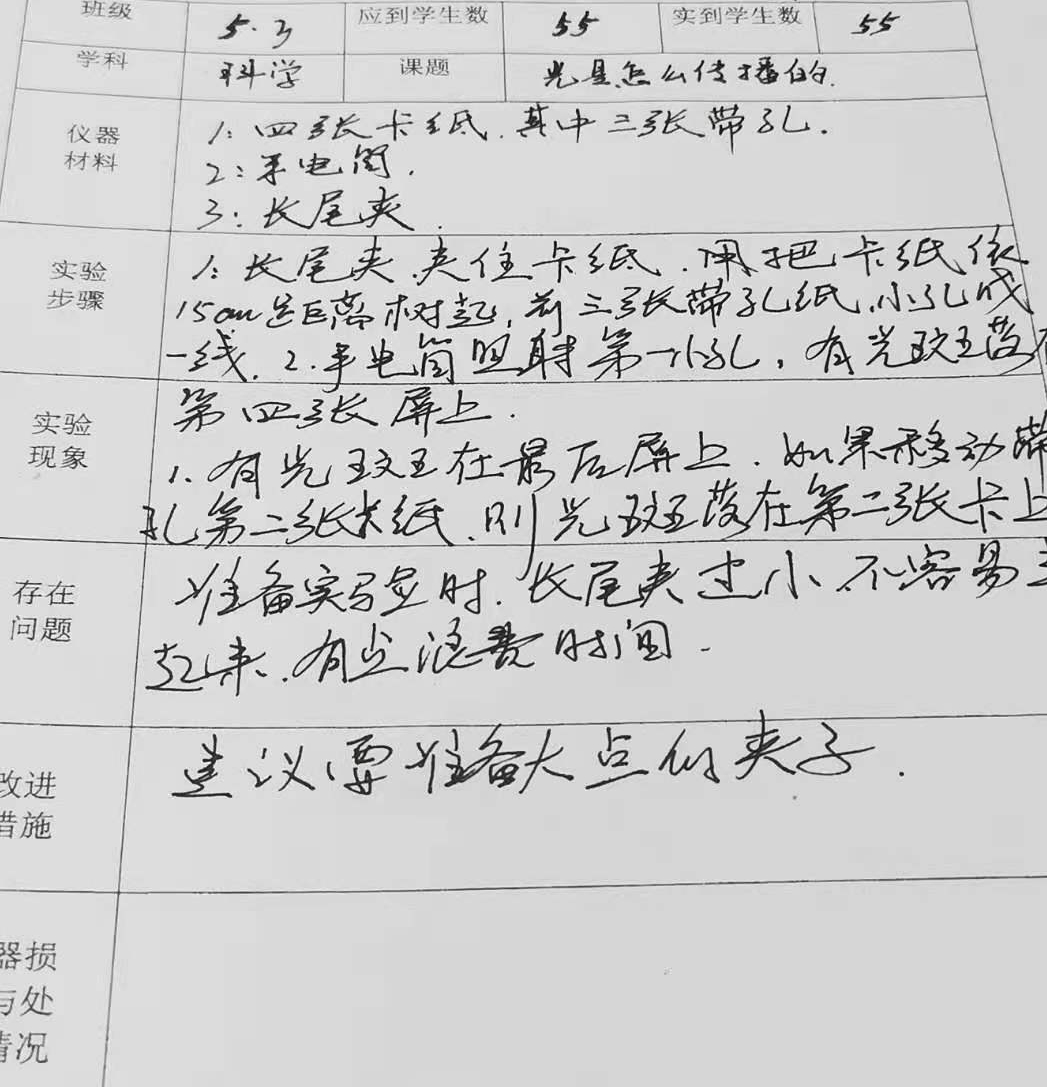 班级 5.3 应到学生数 55 实到学生数 55
学科 科学 课题 光是怎么传播的.
仪器
材料
1: 四张卡纸, 其中三张带孔.
2: 手电筒.
3: 长尾夹.
实验
步骤
1: 长尾夹夹住卡纸. 用把卡纸依
15cm 距离树起, 前三张带孔纸, 小孔成
一线. 2. 手电筒照射第一小孔, 有光斑落在
第四张屏上.
实验
现象
1. 有光斑在最后屏上. 如果移动带
孔第二张卡纸, 则光斑落在第二张卡上
存在
问题
准备实验时, 长尾夹过小, 不容易立
起来, 有点浪费时间.
改进
措施
建议要准备大点的夹子.
器损
与处
情况